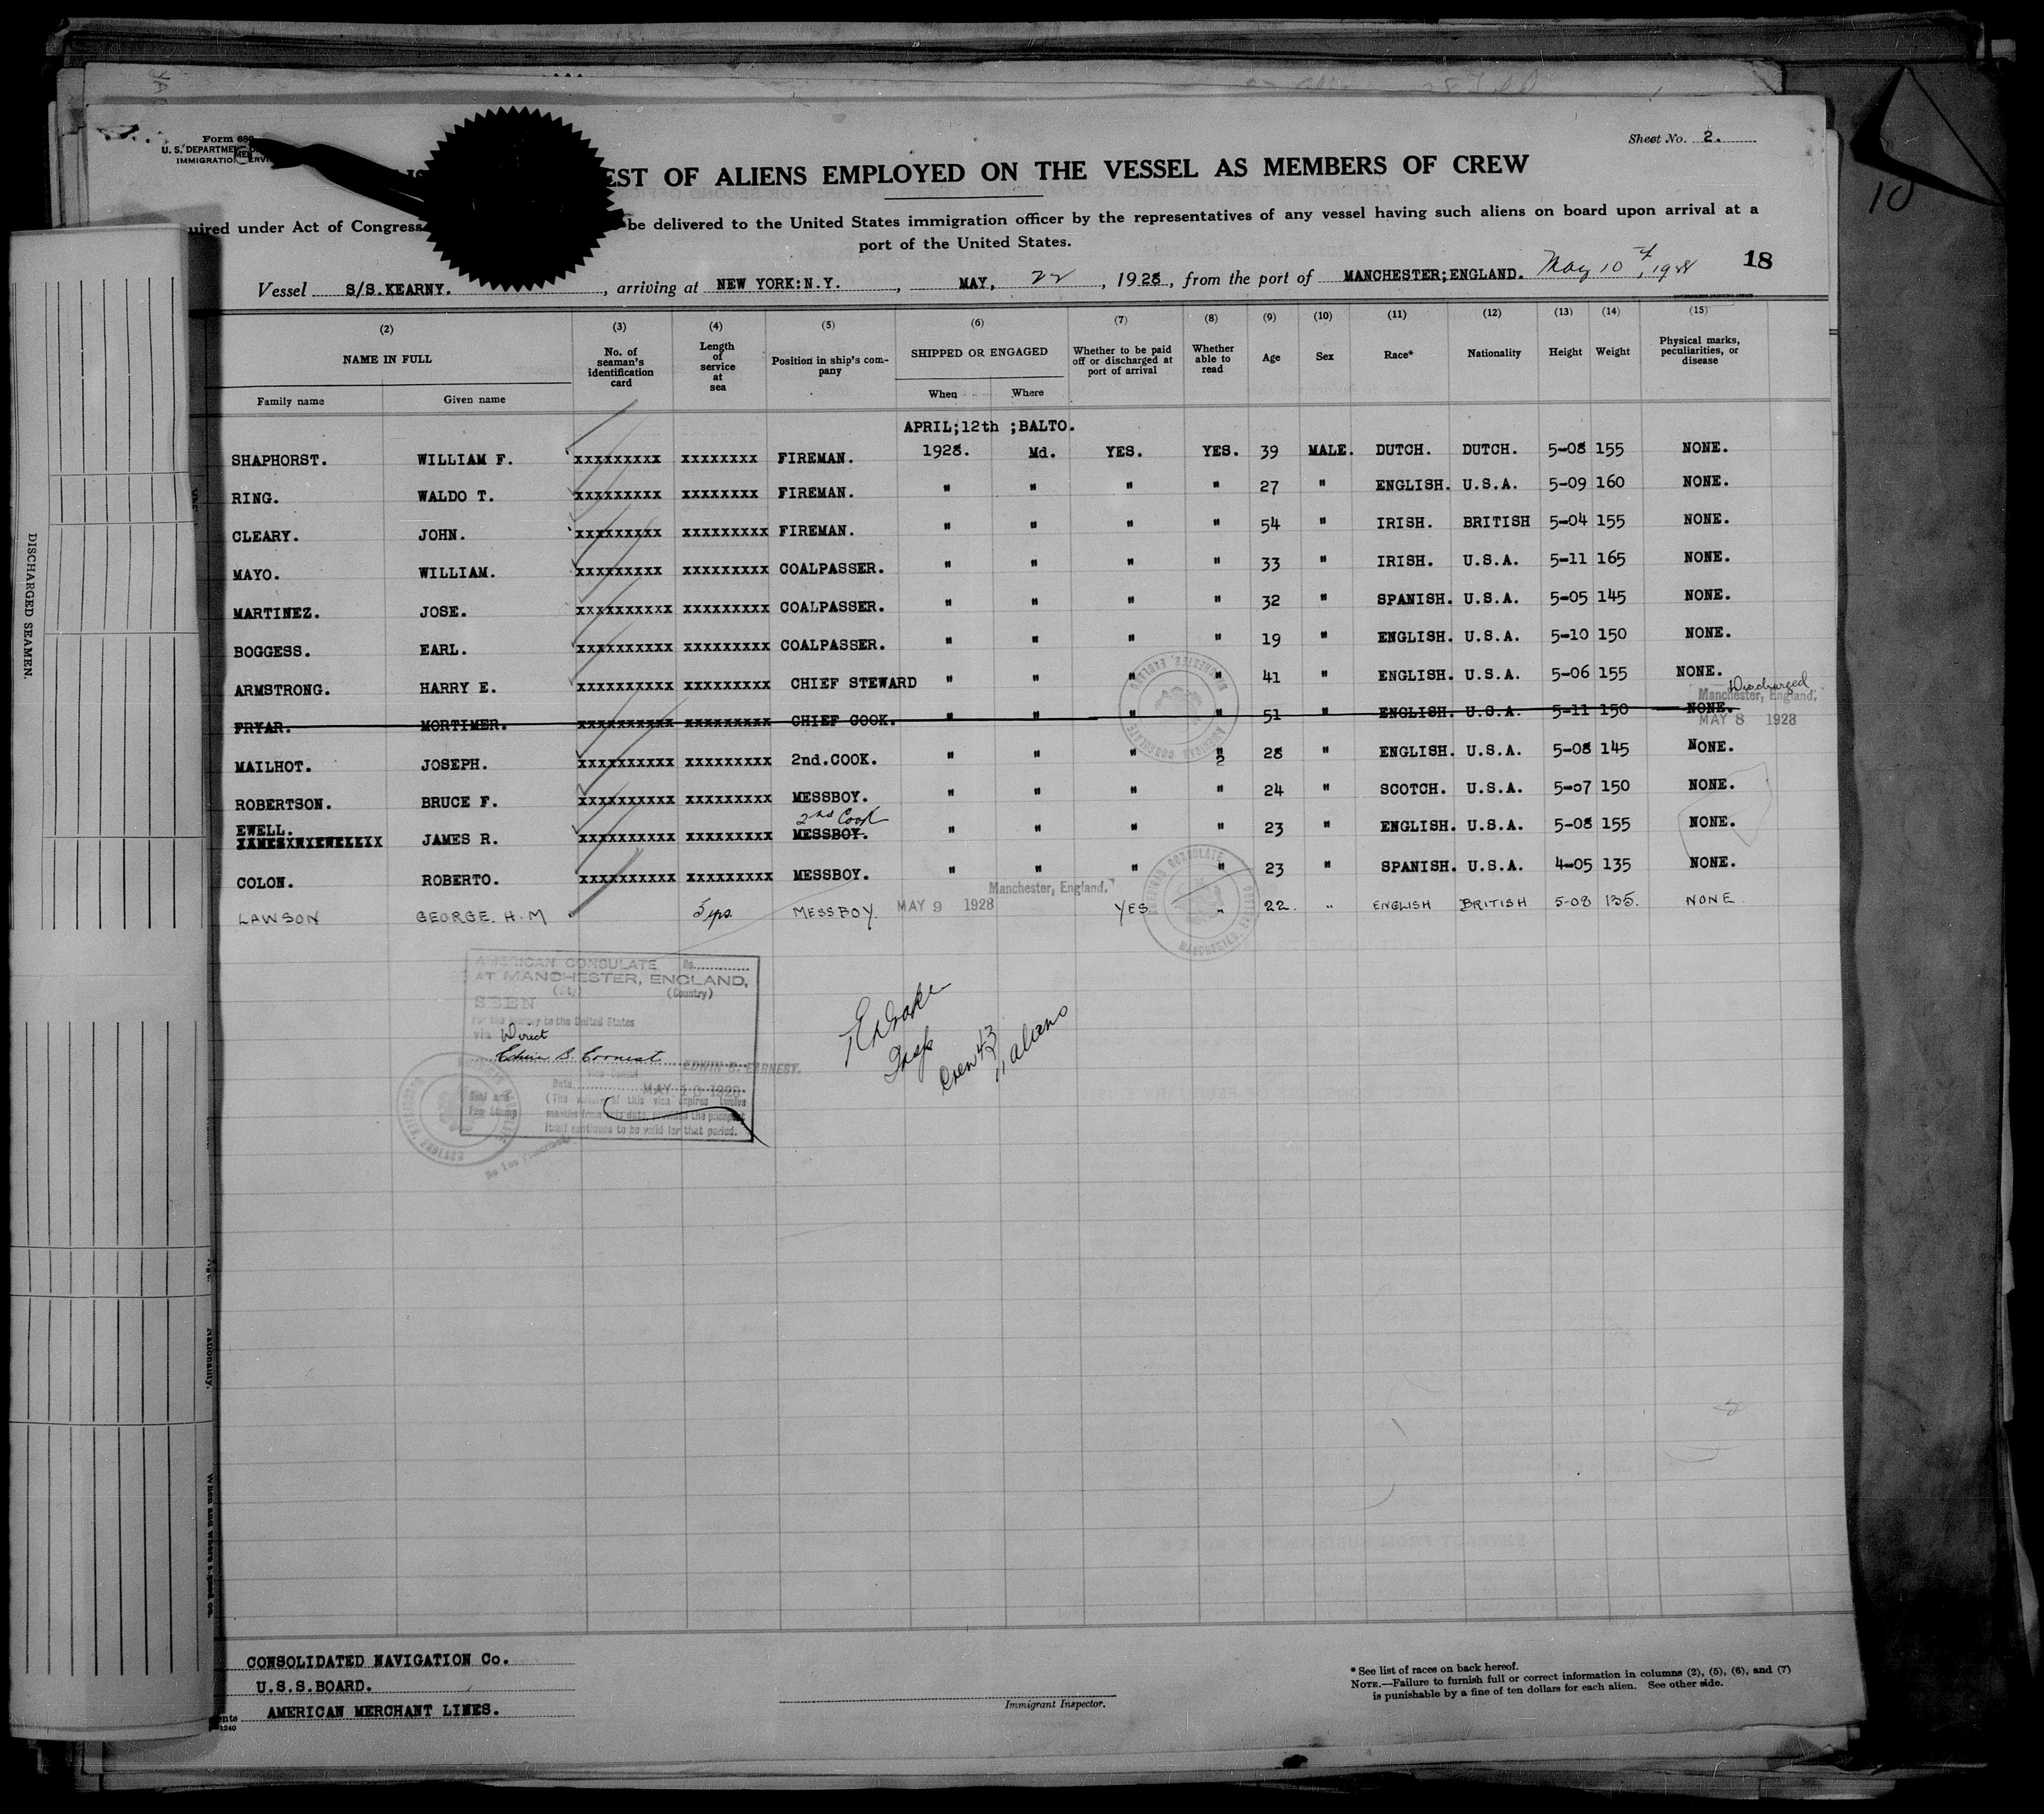 Form 680
U. S. DEPARTMENT
IMMIGRATION SERVICE
Sheet No. 2.
EST OF ALIENS EMPLOYED ON THE VESSEL AS MEMBERS OF CREW
uired under Act of Congress be delivered to the United States immigration officer by the representatives of any vessel having such aliens on board upon arrival at a
port of the United States.
18
10
Vessel S/S.KEARNY. , arriving at NEW YORK:N.Y. , MAY, 22 , 1928 , from the port of MANCHESTER;ENGLAND. May 10th, 1928
(2) (3) (4) (5) (6) (7) (8) (9) (10) (11) (12) (13) (14) (15)
NAME IN FULL
Family name Given name
No. of seaman's identification card
Length of service at sea
Position in ship's company
SHIPPED OR ENGAGED
When Where
Whether to be paid off or discharged at port of arrival
Whether able to read
Age Sex Race* Nationality Height Weight
Physical marks, peculiarities, or disease
APRIL;12th ;BALTO.
SHAPHORST. WILLIAM F. xxxxxxxxx xxxxxxxx FIREMAN. 1928. Md. YES. YES. 39 MALE. DUTCH. DUTCH. 5-08 155 NONE.
RING. WALDO T. xxxxxxxxx xxxxxxxx FIREMAN. " " " " 27 " ENGLISH. U.S.A. 5-09 160 NONE.
CLEARY. JOHN. xxxxxxxxx xxxxxxxxx FIREMAN. " " " " 54 " IRISH. BRITISH 5-04 155 NONE.
MAYO. WILLIAM. xxxxxxxxx xxxxxxxxx COALPASSER. " " " " 33 " IRISH. U.S.A. 5-11 165 NONE.
MARTINEZ. JOSE. xxxxxxxxxx xxxxxxxxx COALPASSER. " " " " 32 " SPANISH. U.S.A. 5-05 145 NONE.
BOGGESS. EARL. xxxxxxxxxx xxxxxxxxx COALPASSER. " " " " 19 " ENGLISH. U.S.A. 5-10 150 NONE.
ARMSTRONG. HARRY E. xxxxxxxxxx xxxxxxxxx CHIEF STEWARD " " " " 41 " ENGLISH. U.S.A. 5-06 155 NONE.
Discharged
Manchester, England.
FRYAR. MORTIMER. xxxxxxxxxx xxxxxxxxx CHIEF COOK. " " " " 51 " ENGLISH. U.S.A. 5-11 150 NONE.
MAY 8 1928
MAILHOT. JOSEPH. xxxxxxxxxx xxxxxxxxx 2nd.COOK. " " " " 28 " ENGLISH. U.S.A. 5-08 145 NONE.
ROBERTSON. BRUCE F. xxxxxxxxxx xxxxxxxxx MESSBOY. " " " " 24 " SCOTCH. U.S.A. 5-07 150 NONE.
2nd Cook
EWELL. JAMES R. xxxxxxxxxx xxxxxxxxx MESSBOY. " " " " 23 " ENGLISH. U.S.A. 5-08 155 NONE.
COLON. ROBERTO. xxxxxxxxxx xxxxxxxxx MESSBOY. " " " " 23 " SPANISH. U.S.A. 4-05 135 NONE.
Manchester, England.
LAWSON GEORGE. H. M 5 yrs. MESSBOY. MAY 9 1928 YES. " 22. " ENGLISH BRITISH 5-08 135. NONE
AMERICAN CONSULATE No.
AT MANCHESTER, ENGLAND,
(City) (Country)
SEEN
For the journey to the United States
via Direct
Edwin B. Earnest
EDWIN B. EARNEST.
Vice Consul
Date MAY 10 1928
(The validity of this visa expires twelve
months from this date, provided the passport
itself continues to be valid for that period.
Seal and
Fee Stamp
AMERICAN CONSULATE
MANCHESTER, ENGLAND
Insp
Crew 43
11 aliens
DISCHARGED SEAMEN.
Nationality.
CONSOLIDATED NAVIGATION Co.
U.S.S.BOARD.
AMERICAN MERCHANT LINES.
Immigrant Inspector.
* See list of races on back hereof.
NOTE.—Failure to furnish full or correct information in columns (2), (5), (6), and (7)
is punishable by a fine of ten dollars for each alien. See other side.